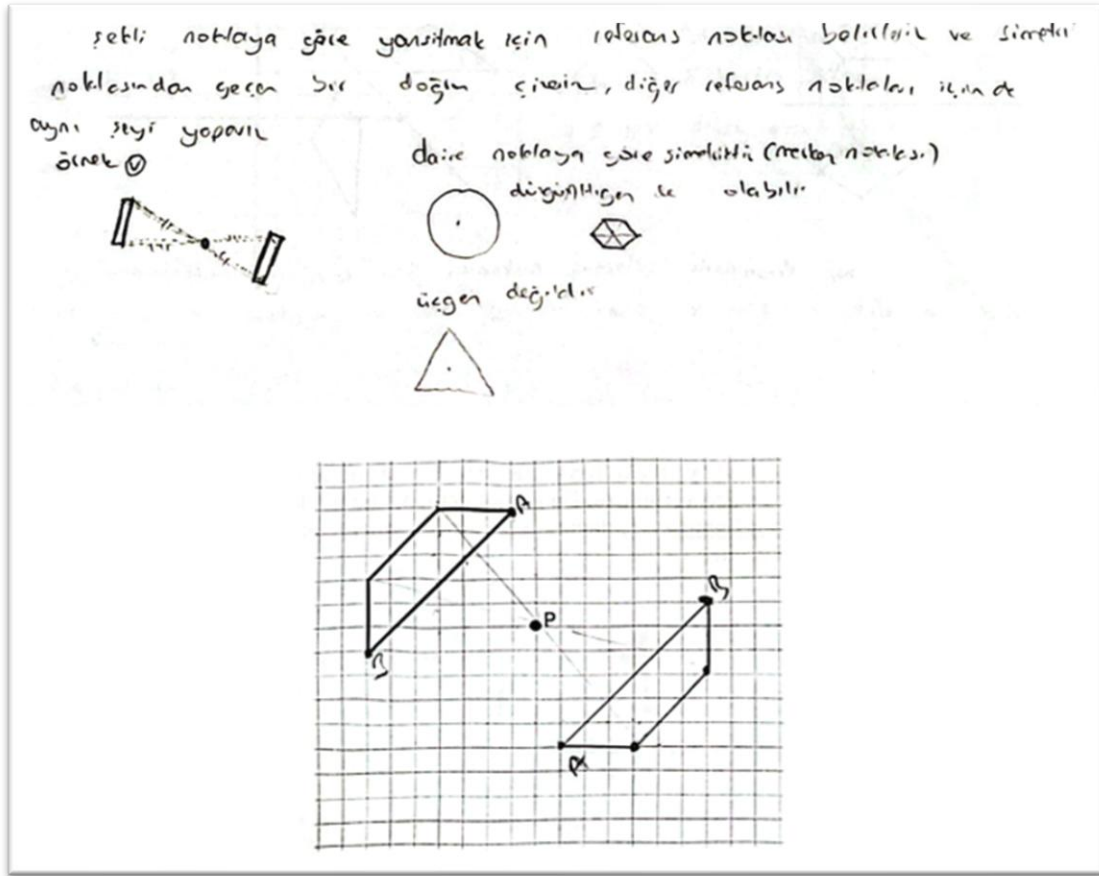 şekli noktaya göre yansıtmak için referans noktası belirlerik ve simetri
noktasından geçen bir doğru çizerim, diğer referans noktaları için de
aynı şeyi yaparım
örnek
daire noktaya göre simetrikti (merkez noktası)
düzgün altıgen de olabilir
üçgen değildir
A
B
P
B
A